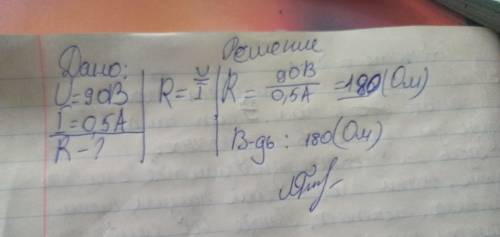 Решение
Дано:
U=90В
I=0,5А
R-?
R=U/I
R=90В/0,5А=180(Ом)
В-дь: 180(Ом)